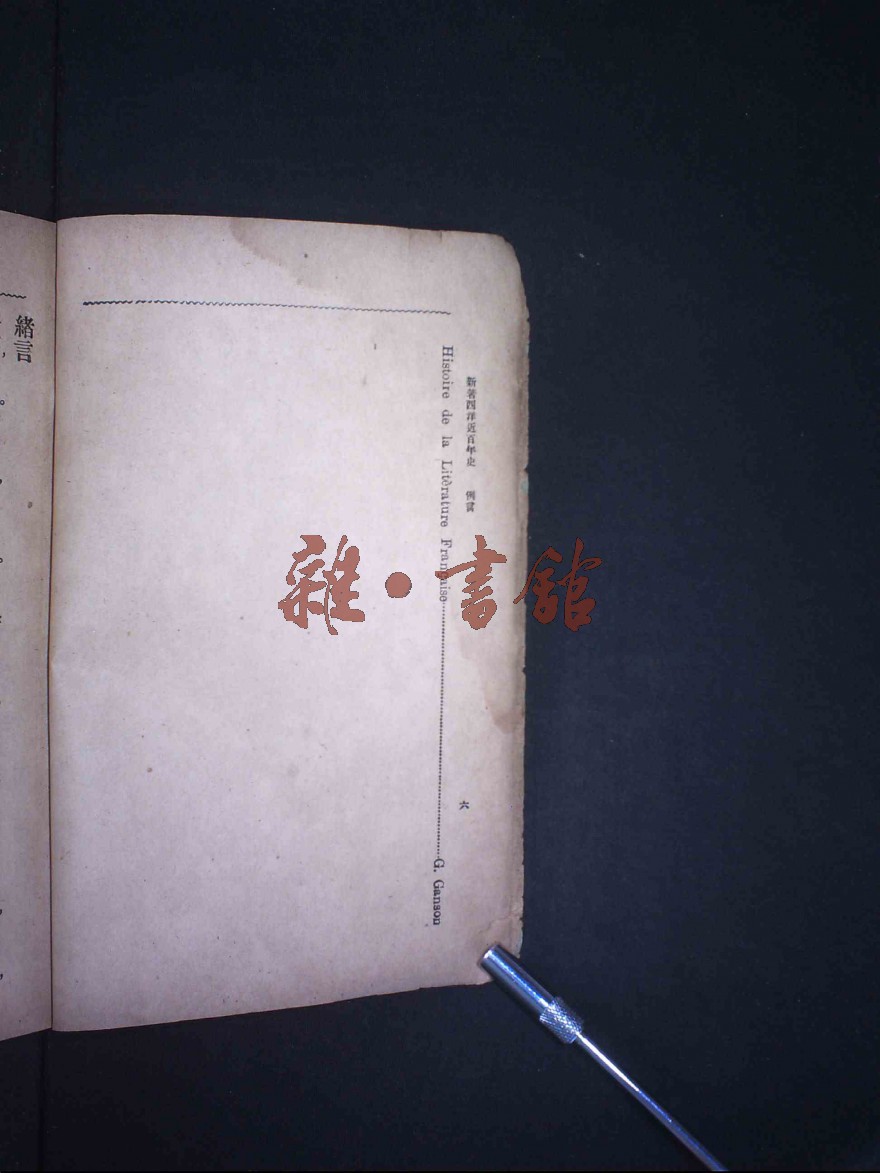 新著西洋近百年史 例言 六
Histoire de la Litèrature Française........G. Ganson
緒言
雜·書館